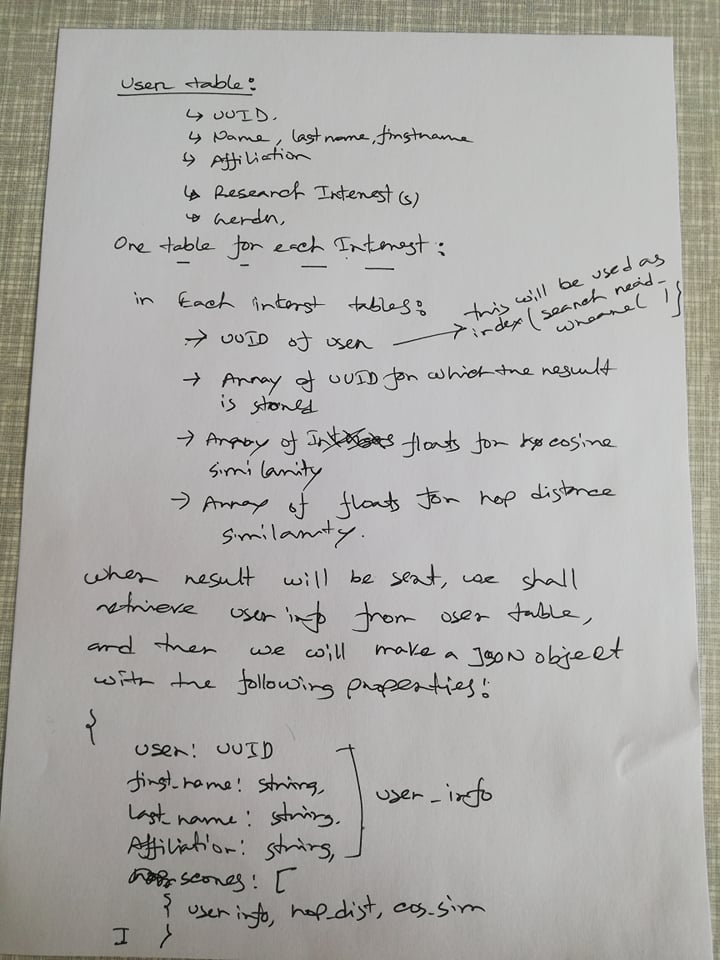 User table:
↳ UUID.
↳ Name, lastname, firstname
↳ Affiliation
↳ Research Interest(s)
↳ Gerdn,
One table for each Interest:
in Each interst tables:
→ UUID of user → this will be used as
index (search read-
→ Array of UUID for which the result
is stored
→ Array of floats for cosine
similarity
→ Array of floats for hop distance
similarity.
when result will be sent, we shall
retrieve user info from user table,
and then we will make a JSON object
with the following properties:
{
user: UUID
first_name: string,
last_name: string.
Affiliation: string,
user_info
scores: [
{ user info, hop_dist, cos_sim
}